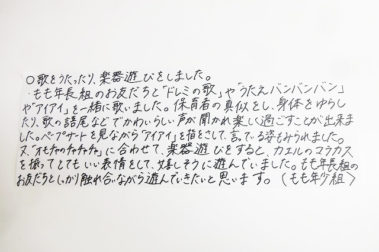 ○歌をうたったり、楽器遊びをしました。
・もも年長組のお友だちと「ドレミの歌」や「うたえバンバンバン」
や「アイアイ」を一緒に歌いました。保育者の真似をし、身体をゆらし
たり、歌の語尾などでかわいらしい声が聞かれ楽しく過ごすことが出来ま
した。ペープサートを見ながら「アイアイ」を指をさして、言っている姿もみられました。
又、「オモチャのチャチャチャ」に合わせて、楽器遊びをすると、カエルのマラカス
を振ってとてもいい表情をして、嬉しそうに遊んでいました。もも年長組の
お友だちとしっかり触れ合いながら遊んでいきたいと思います。（もも年少組）